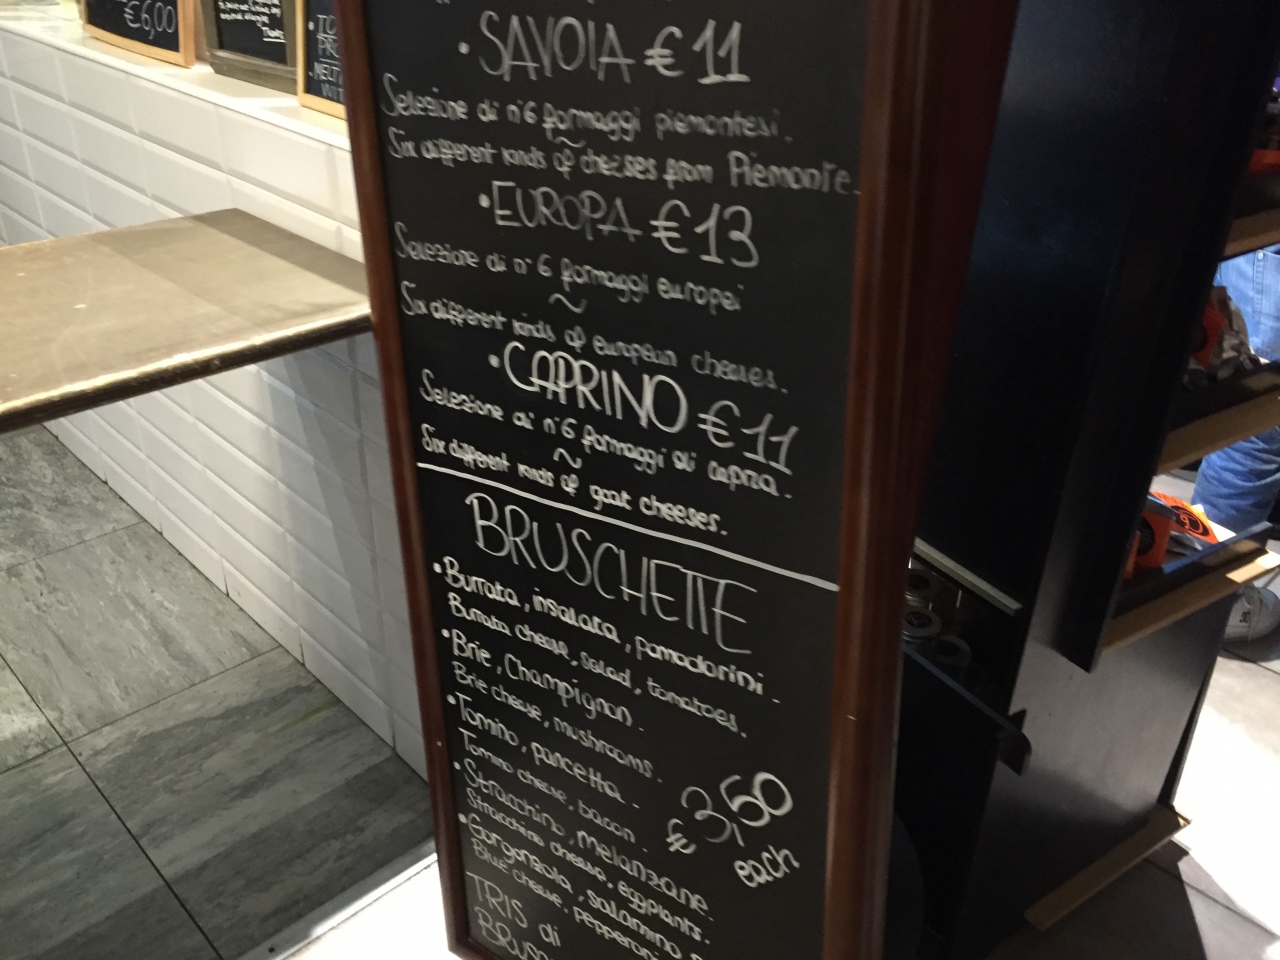 €6,00
Thanks
• SAVOIA € 11
Selezione di n°6 formaggi piemontesi.
~
Six different kinds of cheeses from Piemonte.
• EUROPA € 13
Selezione di n°6 formaggi europei
~
Six different kinds of european cheeses.
• CAPRINO € 11
Selezione di n°6 formaggi di capra.
~
Six different kinds of goat cheeses.
BRUSCHETTE
• Burrata, insalata, pomodorini.
Burrata cheese, salad, tomatoes.
• Brie, Champignon.
Brie cheese, mushrooms.
• Tomino, pancetta.
Tomino cheese, bacon.
€ 3,50
each
• Stracchino, melanzane.
Stracchino cheese, eggplants.
• Gorgonzola, salamino
Blue cheese, pepperoni
TRIS di